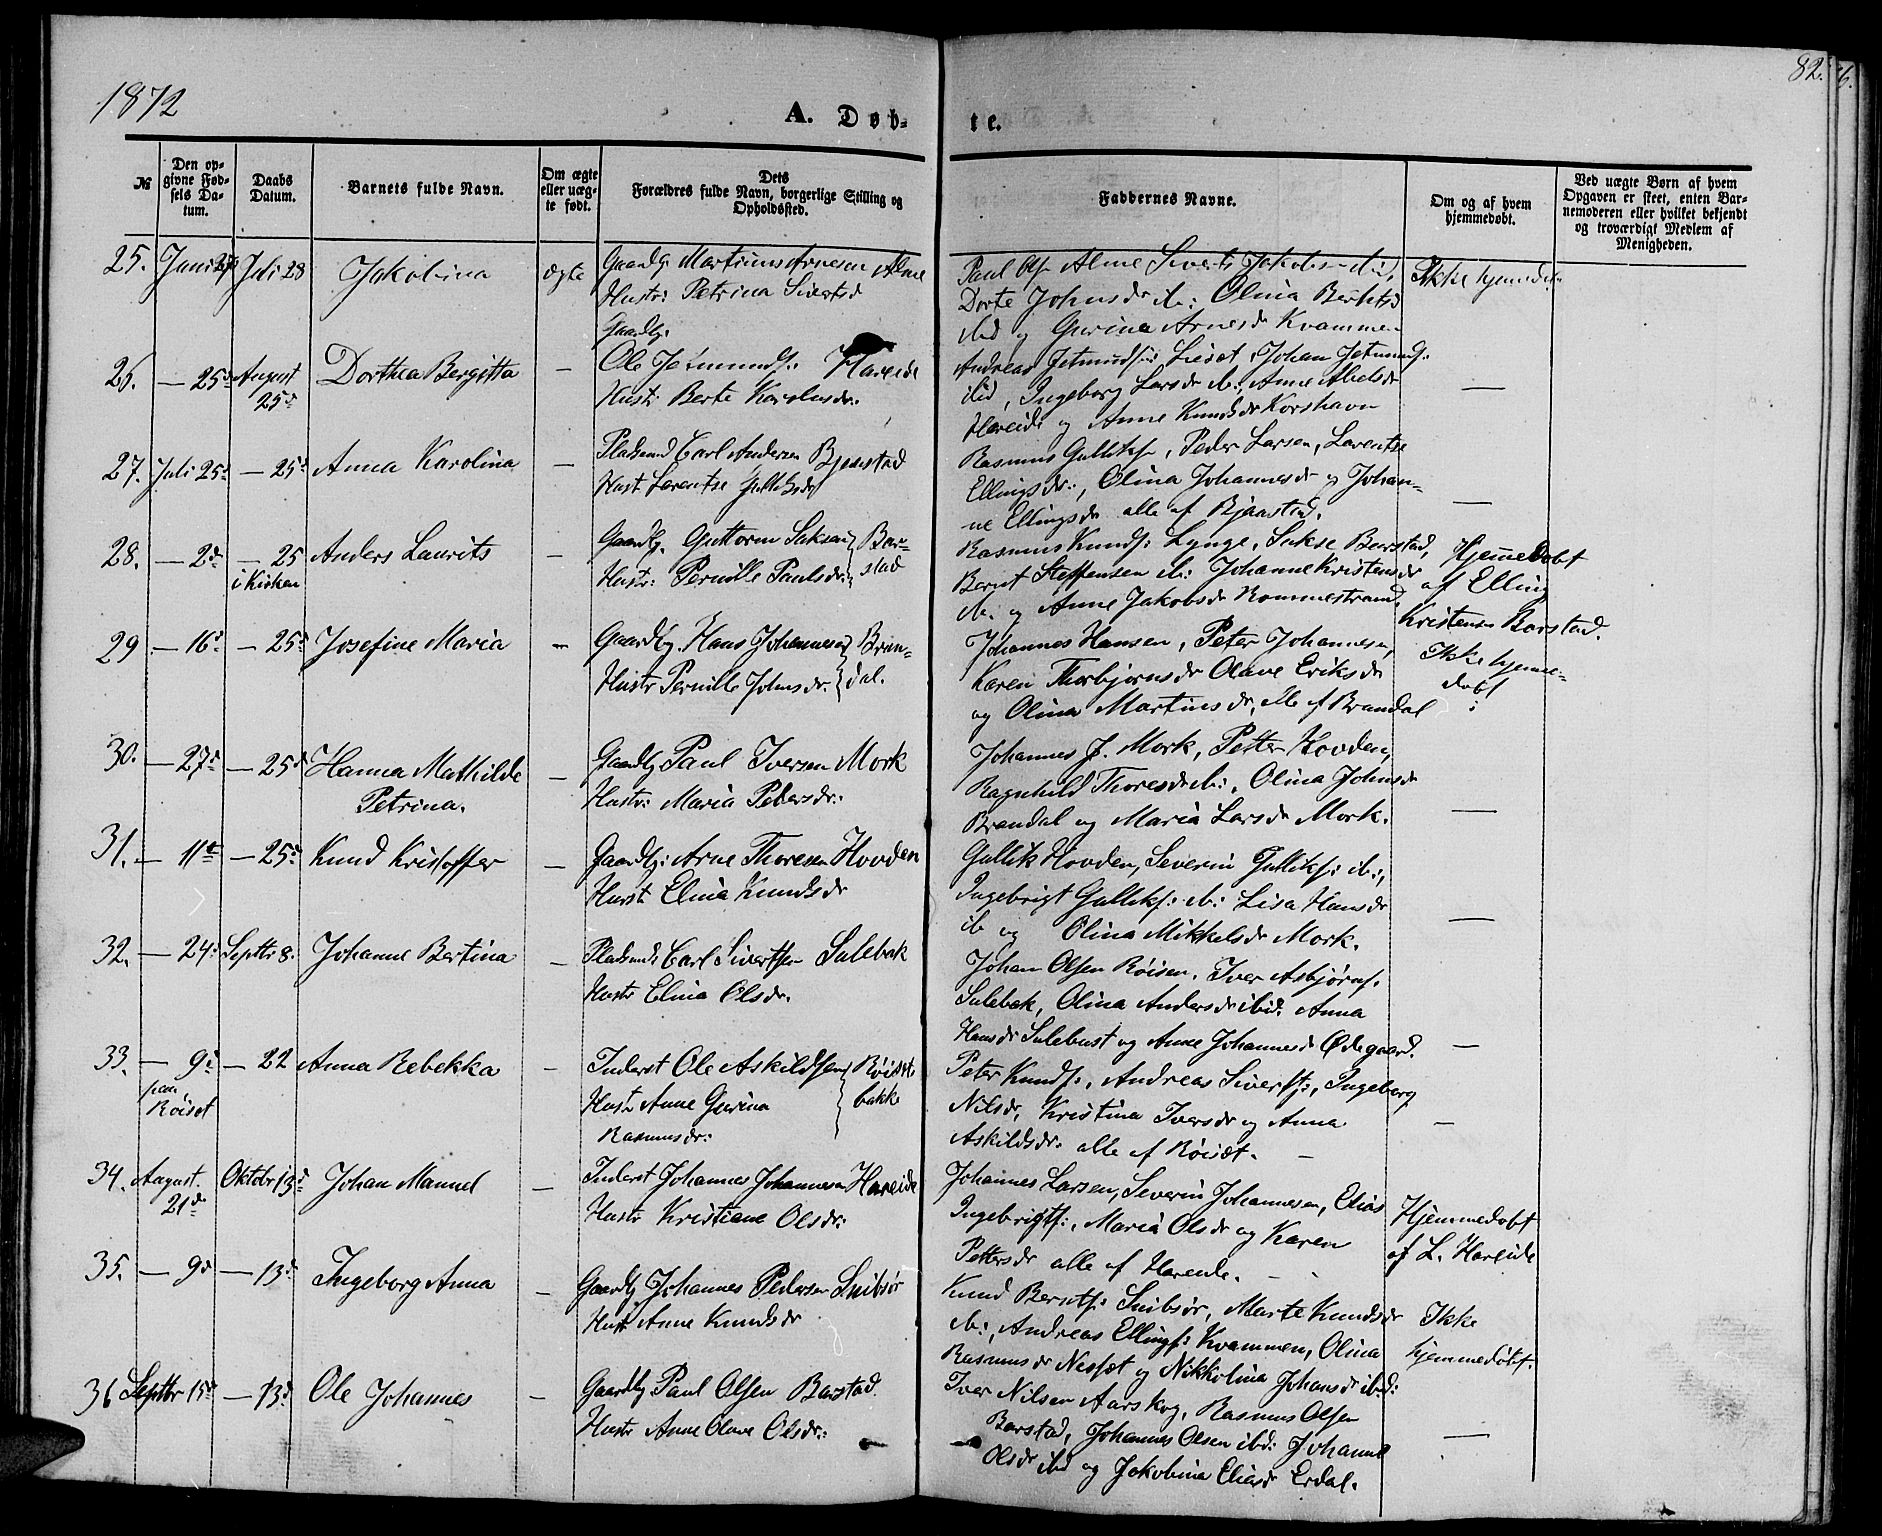 1872
A. Døb-
te.
82.
№
Den op-
givne Fød-
sels Da-
tum.
Daabs
Datum.
Barnets fulde Navn.
Om ægte
eller uæg-
te født.
Dets
Forældres fulde Navn, borgerlige Stilling og
Opholdssted.
Faddernes Navne.
Om og af hvem
hjemmedøbt.
Ved uægte Børn af hvem
Opgaven er skeet, enten Bar-
nemoderen eller hvilket bekjendt
og troværdigt Medlem af
Menigheden.
25. Juni Juli 28 Jakobina ægte Gaardbr. Martinus Arnesen Alme
Hustr: Petrina Sivertsd
Paul Ols. Alme Sivert Jakobs.
Dorte Johnsdr ib: Olina
ibid og Gurina Arnesdr Kvammen
Ikke hjemmed.
26. — 25d August
25d
Dorthea Bergitta —
Gaardbr.
Ole Jetmunds: Hareide
Hustr Berte Karolusdr.
Andreas Jetmunds: Liset, Johan Jetmunds:
ibid, Ingeborg Larsdr ib:, Anne Abelsdr
Hareide og Anne Knudsdr Korshavn
—
27. Juli 25d — 25d Anna Karolina —
Pladsmd Carl Andersen Bjaastad
Hust Larentse Gulliksdr
Rasmus Gulliks., Peder Larsen, Larentse
Ellingsdr., Olina Johannesdr og Johan-
ne Ellingsdr alle af Bjaastad.
—
28. — 2d — 25
i Kirken
Anders Laurits —
Gaardbr. Guttorm Saksen Bar-
stad
Hustr: Pernille Paulsdr.
Rasmus Knuds: Lynge, Sakse Barstad,
Bernt Steffensen ib: Johanne Kristensdr
ib. og Anne Jakobsdr Rommestrand.
Hjemmedøbt
af Elling
Kristensen Barstad.
29 — 16d — 25d Josefine Maria —
Gaardbr. Hans Johannesen Bran-
dal.
Hustr Pernille Johnsdr.
Johannes Hansen, Peter Johannesen,
Karen Thorbjørnsdr Olave Eriksdr
og Olina Martinusdr, alle af Brandal
Ikke hjemme-
døbt
30. — 27d — 25d Hanna Mathilde
Petrina.
—
Gaardbr Paul Iversen Mork
Hustr: Maria Pedersdr.
Johannes J. Mork, Petter Hovden,
Ragnhild Thoresdr ib:, Olina Johnsdr
Brandal og Maria Larsdr Mork.
—
31. — 11te — 25d Knud Kristoffer —
Gaardbr: Arne Thoresen Hovden
Hustr Elina Knudsdr
Gullik Hovden, Severin Gulliks: ib:,
Ingebrigt Gulliks: ib: Lisa Hansdr
ib og Olina Mikkelsdr Mork.
—
32. — 24d Septbr 8d Johanne Bertina —
Pladsmd: Carl Sivertsen Sulebak
Hustr Elina Olsdr.
Johan Olsen Røisen, Iver Asbjørns.
Sulebak, Olina Andersdr ibid. Anna
Hansdr Sulebust og Anne Johannesdr Ødegaard.
—
33. — 9d
paa
Røiset
— 22 Anna Rebekka —
Inderst Ole Askildsen Røiset-
bakke
Hustr Anne Gurina
Rasmusdr:
Peter Knuds:, Andreas Siverts:, Ingeborg
Nilsdr, Kristina Iversdr og Anna
Askildsdr. alle af Røiset.
—
34. August.
21de
Oktobr 13d Johan Manuel —
Inderst Johannes Johannesen Hareide
Hustr Kristiane Olsdr:
Johannes Larsen, Severin Johannesen, Elias
Ingebrigts:, Maria Olsdr og Karen
Pettersdr alle af Hareide.
Hjemmedøbt
af L. Hareide
35. — 9d — 13d Ingeborg Anna —
Gaardbr Johannes Pedersen Snibsør
Hustr Anne Knudsdr
Knud Bernts: Snibsør, Marte Knudsdr
ib:, Andreas Ellings: Kvammen, Olina
Rasmusdr Nesset og Nikkolina Johansdr ibd:
Ikke
hjemmedøbt.
36 Septbr 15d — 13d Ole Johannes —
Gaardbr Paul Olsen Barstad.
Hustr Anne Olave Olsdr:
Iver Nilsen Aarskog, Rasmus Olsen
Barstad, Johannes Olsen ibd: Johanne
Olsdr ibd og Jakobina Eliasdr Erdal.
—